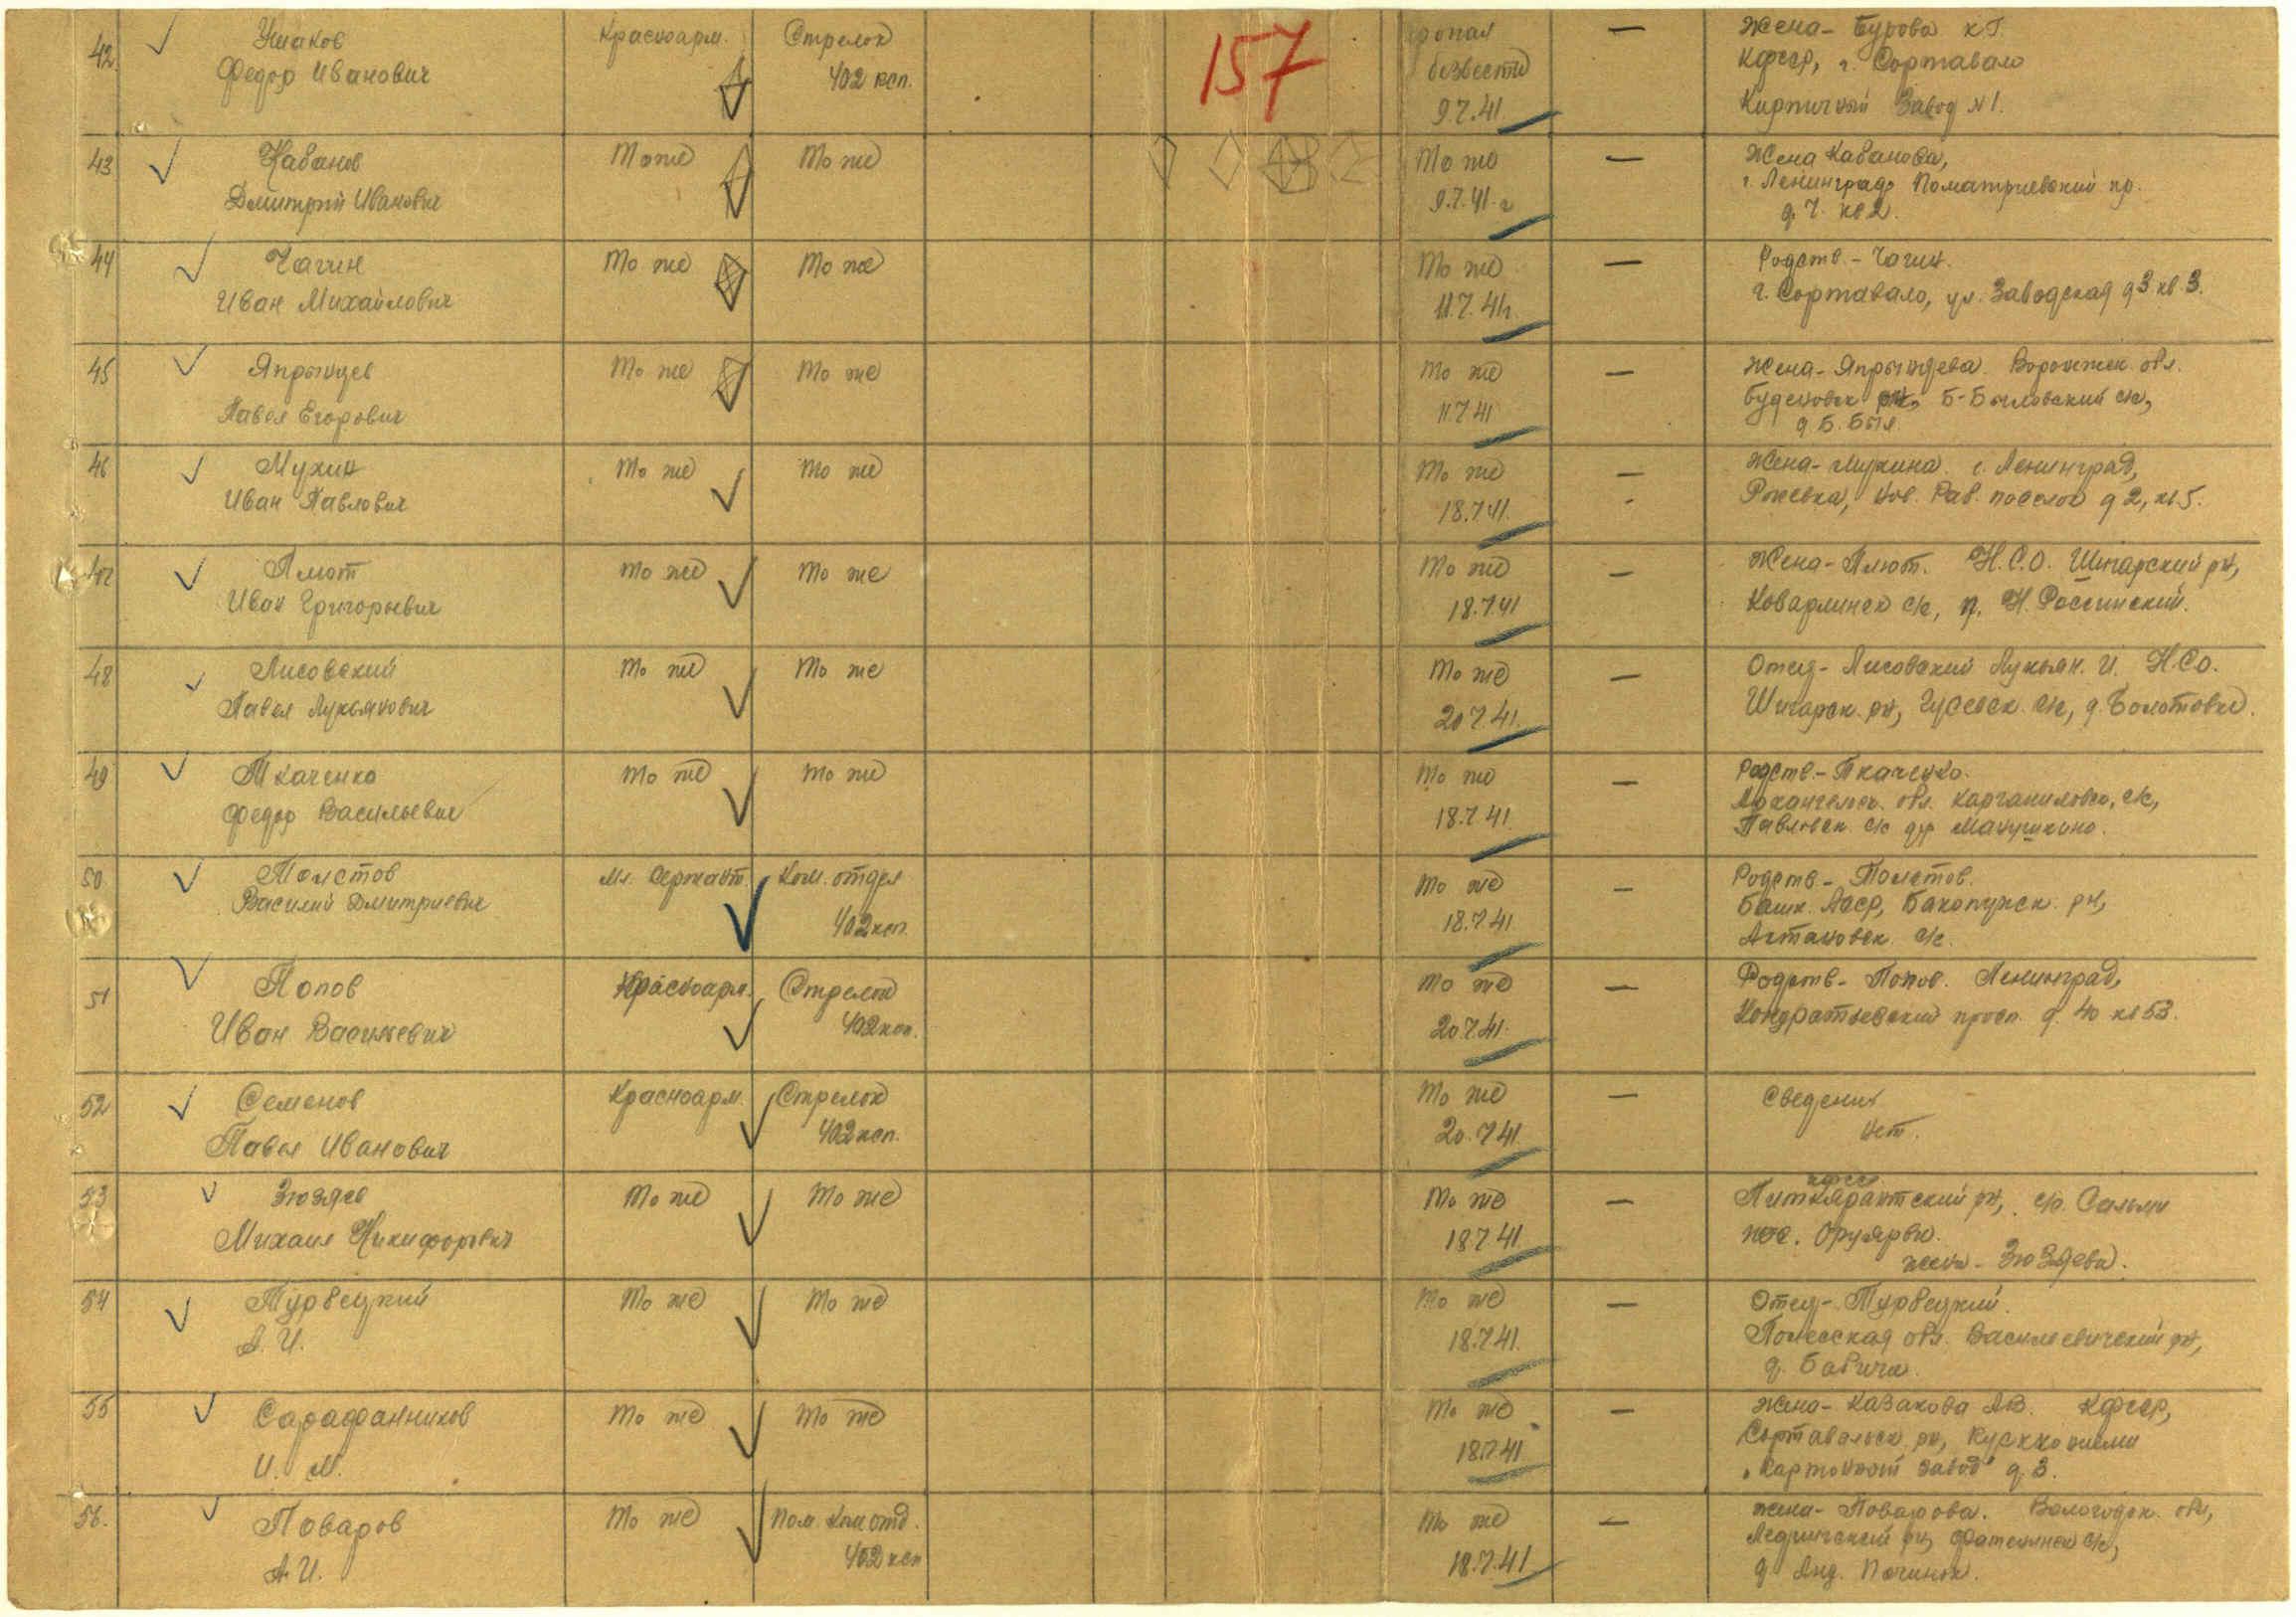 157
42 Ушаков Красноарм. Стрелок пропал — Жена - Бурова К.Г.
Федор Иванович 402 ксп. безвести КФССР, г. Сортавало
9.7.41 Кирпичный Завод №1.
43 Кабанов То же То же То же — Жена Кабанова,
Дмитрий Иванович 9.7.41 г г. Ленинград, пр.
д. 7. кв 2.
44 Чагин То же То же То же — Родств - Чагин.
Иван Михайлович 11.7.41г. г. Сортавало, ул. Заводская д 3 кв 3.
45 Япрынцев То же То же То же — Жена - Япрынцева. Воронжек. обл.
Павел Егорович 11.7.41 Буденовск рн, Б-Быловский с/с,
д. Б. Был.
46 Мухин То же То же То же — Жена - Мухина. г. Ленинград,
Иван Павлович 18.7.41. Ржевка, Нов. Раб. поселок д 2, кв. 5.
47 Плют То же То же То же — Жена - Плют. Н.С.О. рн,
Иван Григорьевич 18.7.41 с/с, п. Н. Россинский.
48 Лисовский То же То же То же — Отец - Лисовский Лукьян. И. НСО.
Павел Лукьянович 20.7.41. рн, Гусевск. с/с, д. Болотовка.
49 Ткаченко То же То же То же — Родств - Ткаченко.
Федор Васильевич 18.7.41 Архангельск. обл. с/с,
Павловск с/с дер Макушкино.
50 Толстов Мл. Сержант. Ком. отдел То же — Родств - Толстов.
Василий Дмитриевич 402 ксп. 18.7.41 Башк. Асср, рн,
с/с.
51 Попов Красноарм. Стрелок То же — Родств - Попов. Ленинград,
Иван Васильевич 402 ксп. 20.7.41. Кондратьевский просп. д. 40 кв 53.
52 Семенов Красноарм. Стрелок То же — Сведений
Павел Иванович 402 ксп. 20.7.41 нет.
53 Зюзяев То же То же То же — Питкярантский рн, с/с. Сальми
Михаил Никифорович 18.7.41 пос. Оруярви.
жена - Зюзяева.
54 Турвецкий То же То же То же — Отец - Турвецкий.
А. И. 18.7.41. Полесская обл. Василевичский рн,
д. Бабичи.
55 Сарафанников То же То же То же — жена - Казакова А.В. КФССР,
И. М. 18.7.41 Сортавальск. рн,
„Картонный завод" д. 3.
56. Поваров То же Пом. Ком отд. То же — жена - Поварова. Вологодск. обл,
А. И. 402 ксп 18.7.41 рн, с/с,
д. Анд. Починок.